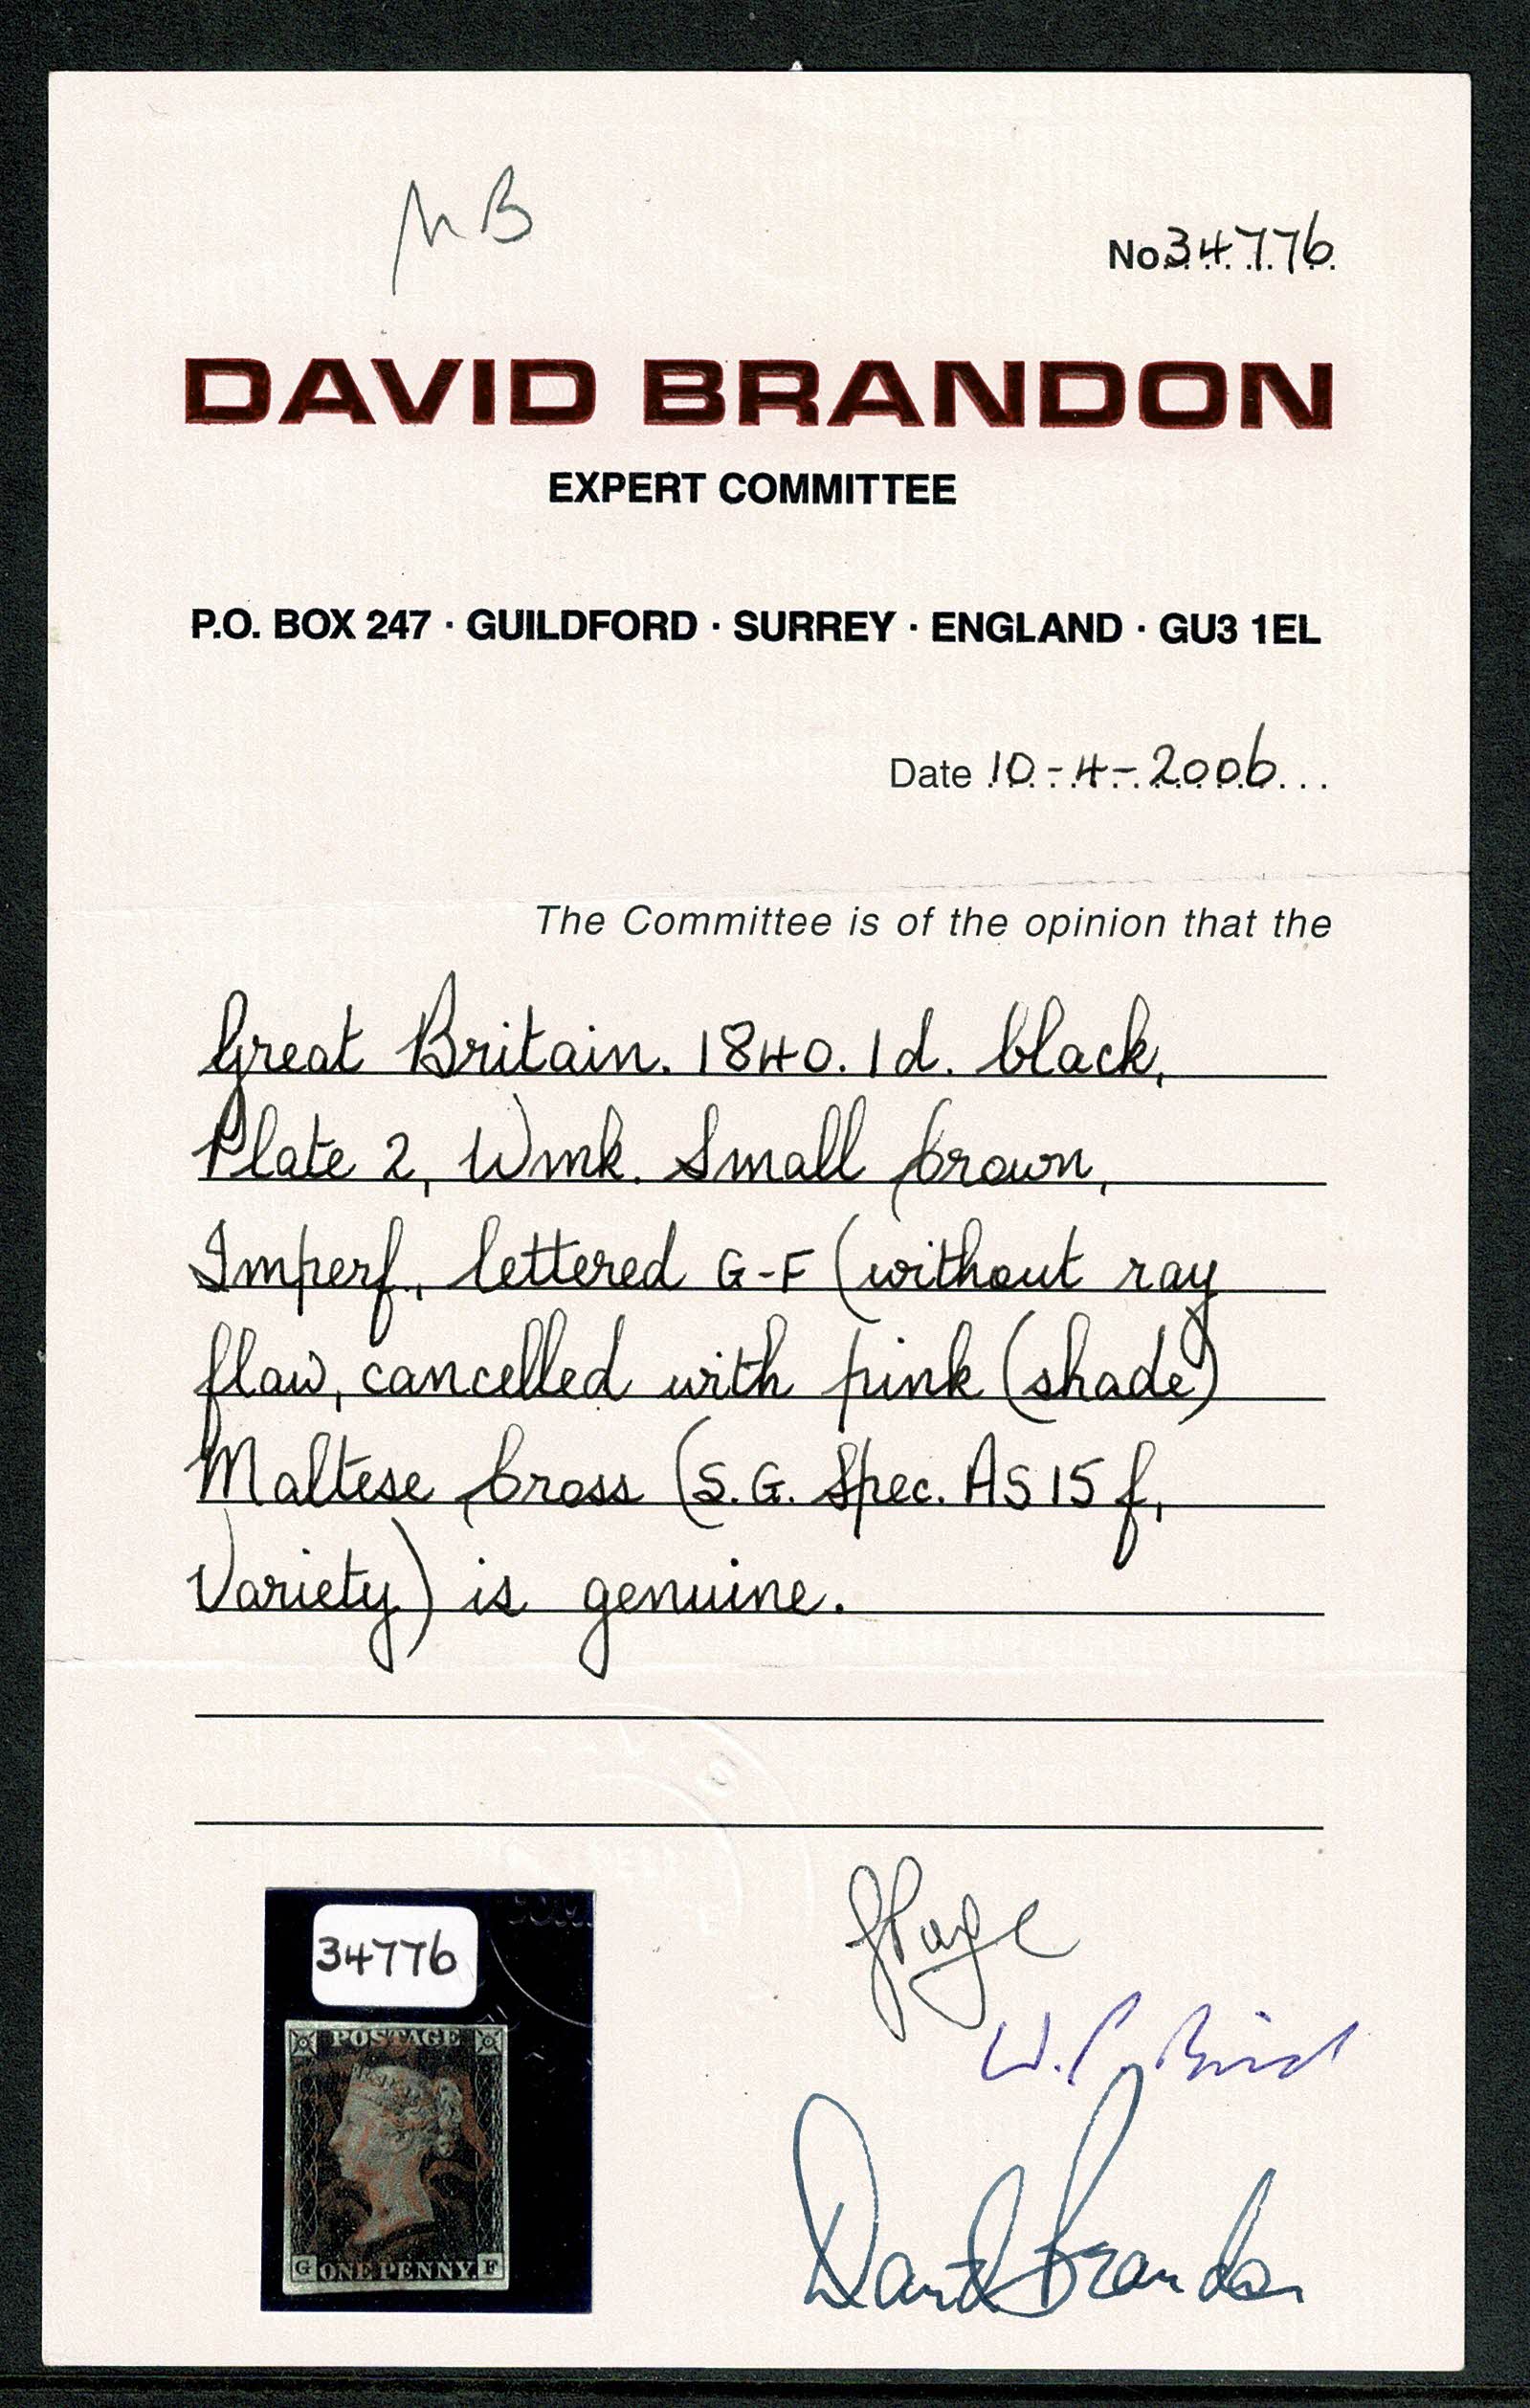 MB
No. 34776
DAVID BRANDON
EXPERT COMMITTEE
P.O. BOX 247 · GUILDFORD · SURREY · ENGLAND · GU3 1EL
Date 10-4-2006...
The Committee is of the opinion that the
Great Britain. 1840. 1d. black,
Plate 2, Wmk. Small Crown,
Imperf., lettered G-F (without ray
flaw, cancelled with pink (shade)
Maltese Cross (S.G. Spec. AS15f,
Variety) is genuine.
34776
POSTAGE
G ONE PENNY. F
David Brandon